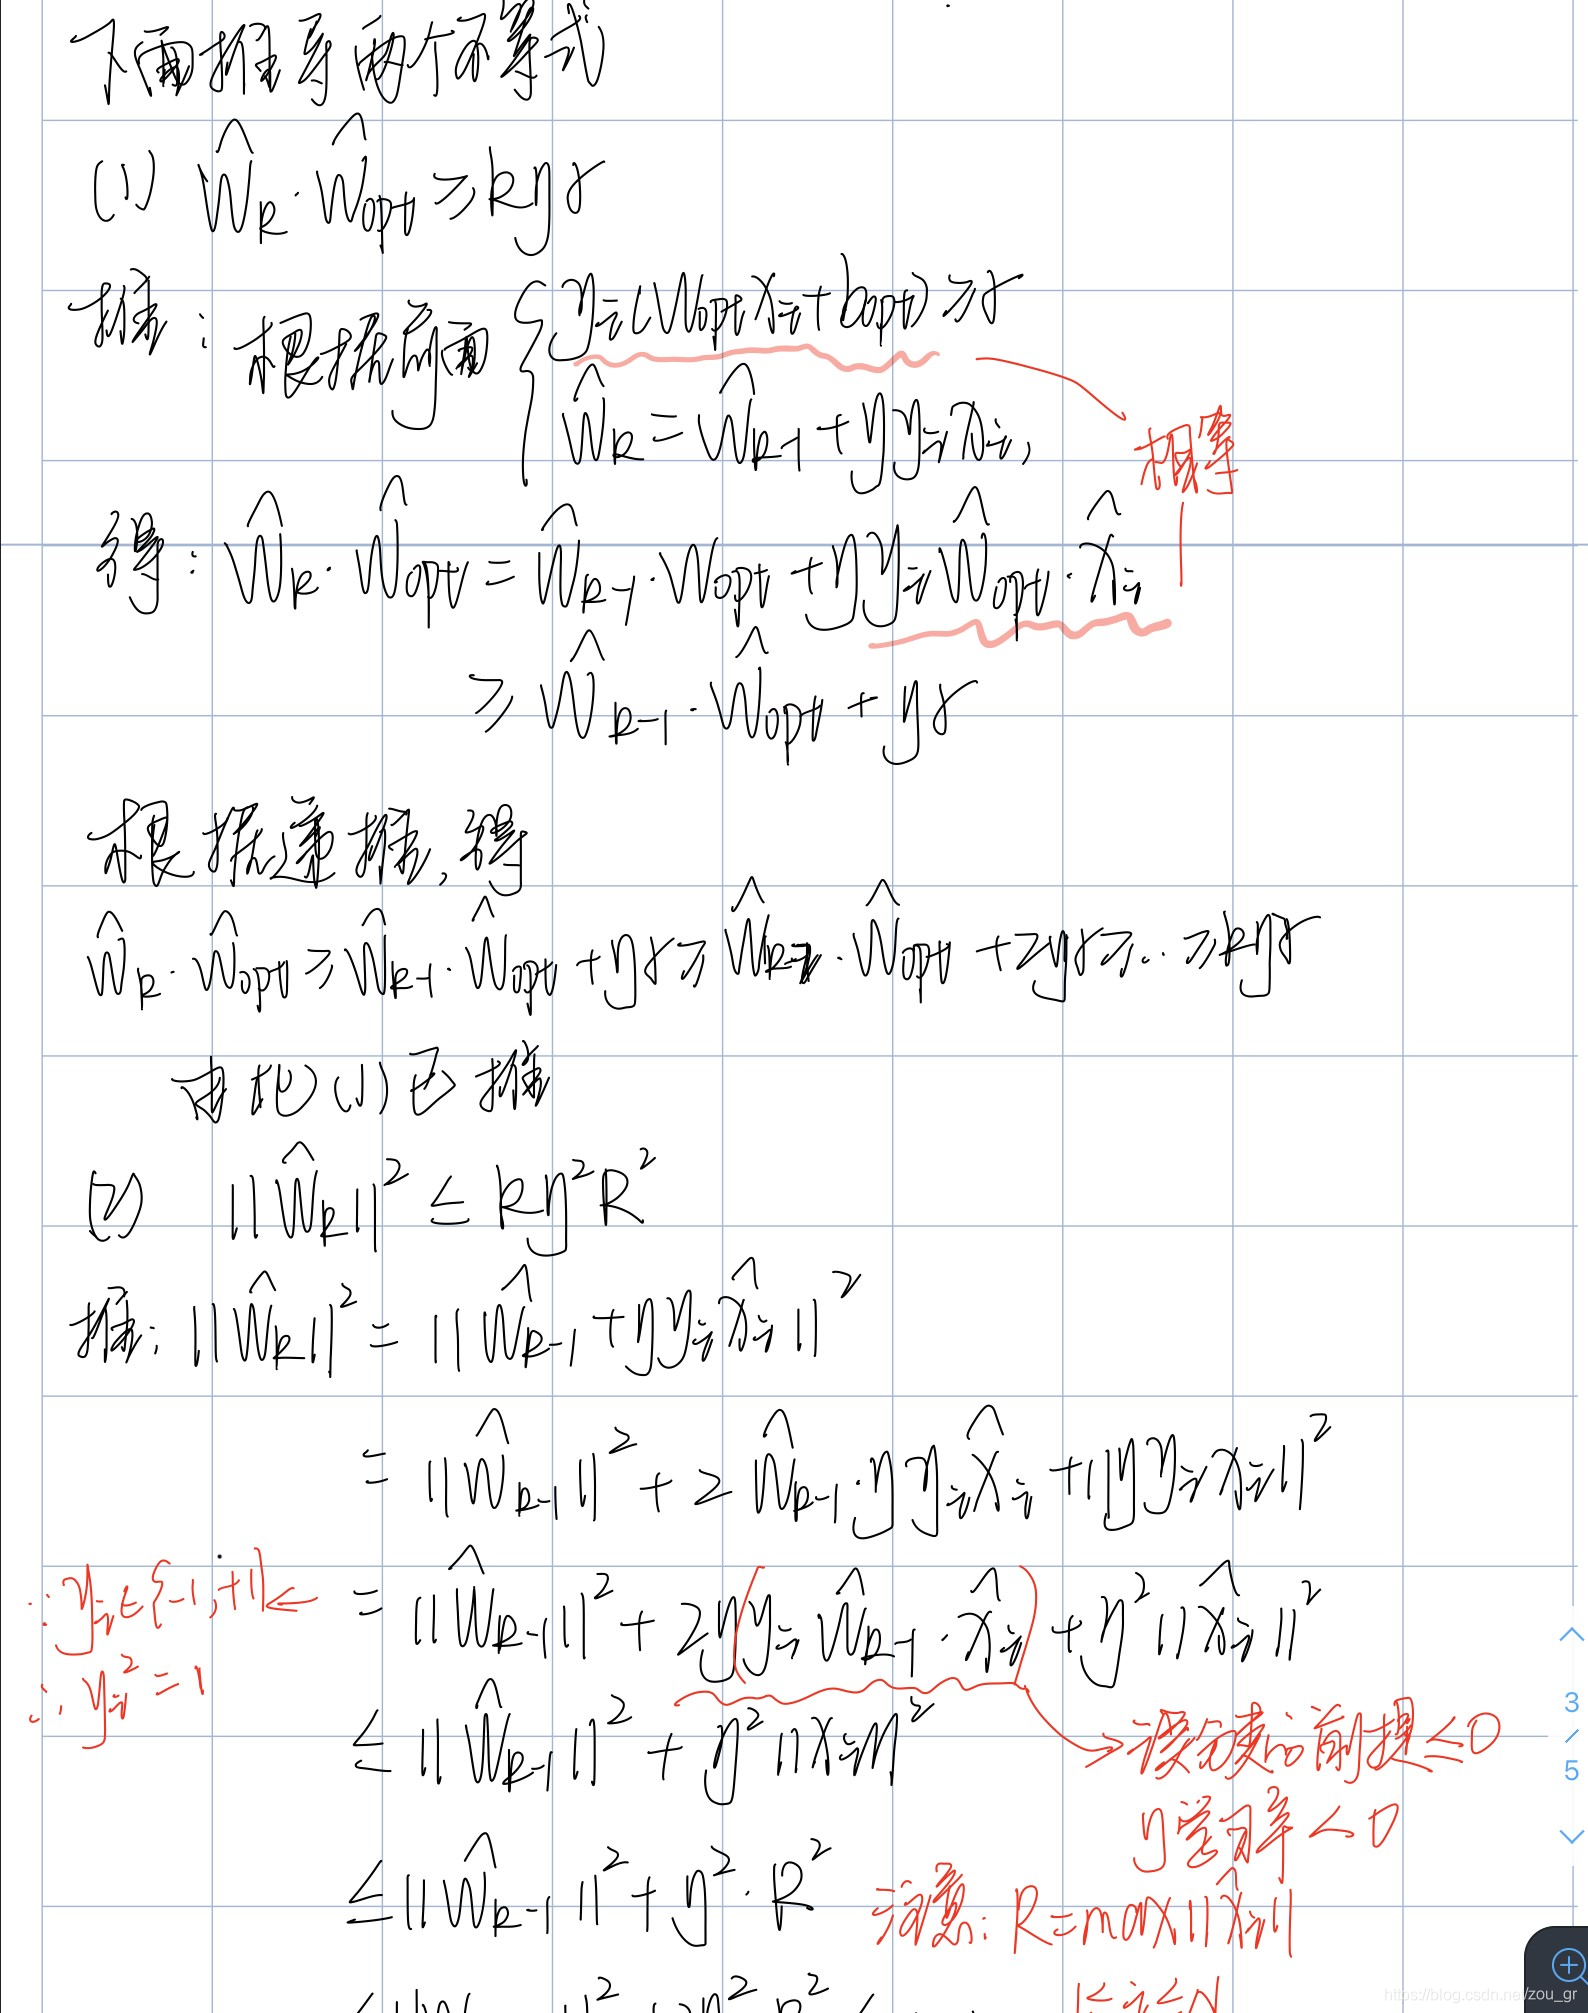 下面推导两个不等式
(1) Ŵk·Ŵopt ≥ kηγ
推: 根据前面 { yi(Wopt xi + bopt) ≥ γ
Ŵk = Ŵk-1 + ηyi xi,
相等
得: Ŵk·Ŵopt = Ŵk-1·Wopt + ηyiŴopt·x̂i
≥ Ŵk-1·Ŵopt + ηγ
根据递推,得
Ŵk·Ŵopt ≥ Ŵk-1·Ŵopt + ηγ ≥ Ŵk-2·Ŵopt + 2ηγ ≥ … ≥ kηγ
由此(1)已推
(2) ||Ŵk||² ≤ kη²R²
推: ||Ŵk||² = ||Ŵk-1 + ηyix̂i||²
= ||Ŵk-1||² + 2Ŵk-1·ηyix̂i + ||ηyixi||²
∵ yi∈{-1,+1} ← = ||Ŵk-1||² + 2η(yiŴk-1·x̂i) + η²||x̂i||²
∴ yi² = 1
≤ ||Ŵk-1||² + η²||xi||² → 误分类的前提 ≤ 0
η学习率 < 0
≤ ||Ŵk-1||² + η²·R² 注意: R = max||x̂i||
1≤i≤N
3
/
5
https://blog.csdn.net/zou_gr